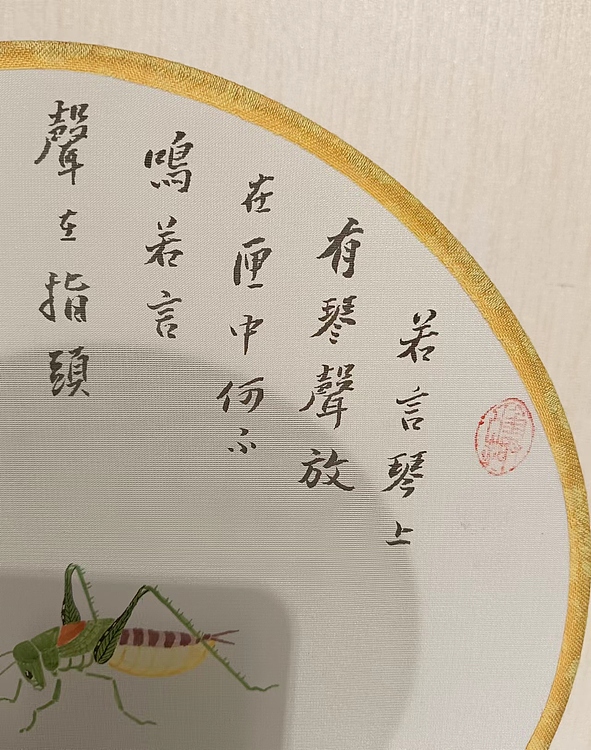 若言琴上
有琴聲放
在匣中何不
鳴若言
聲在指頭